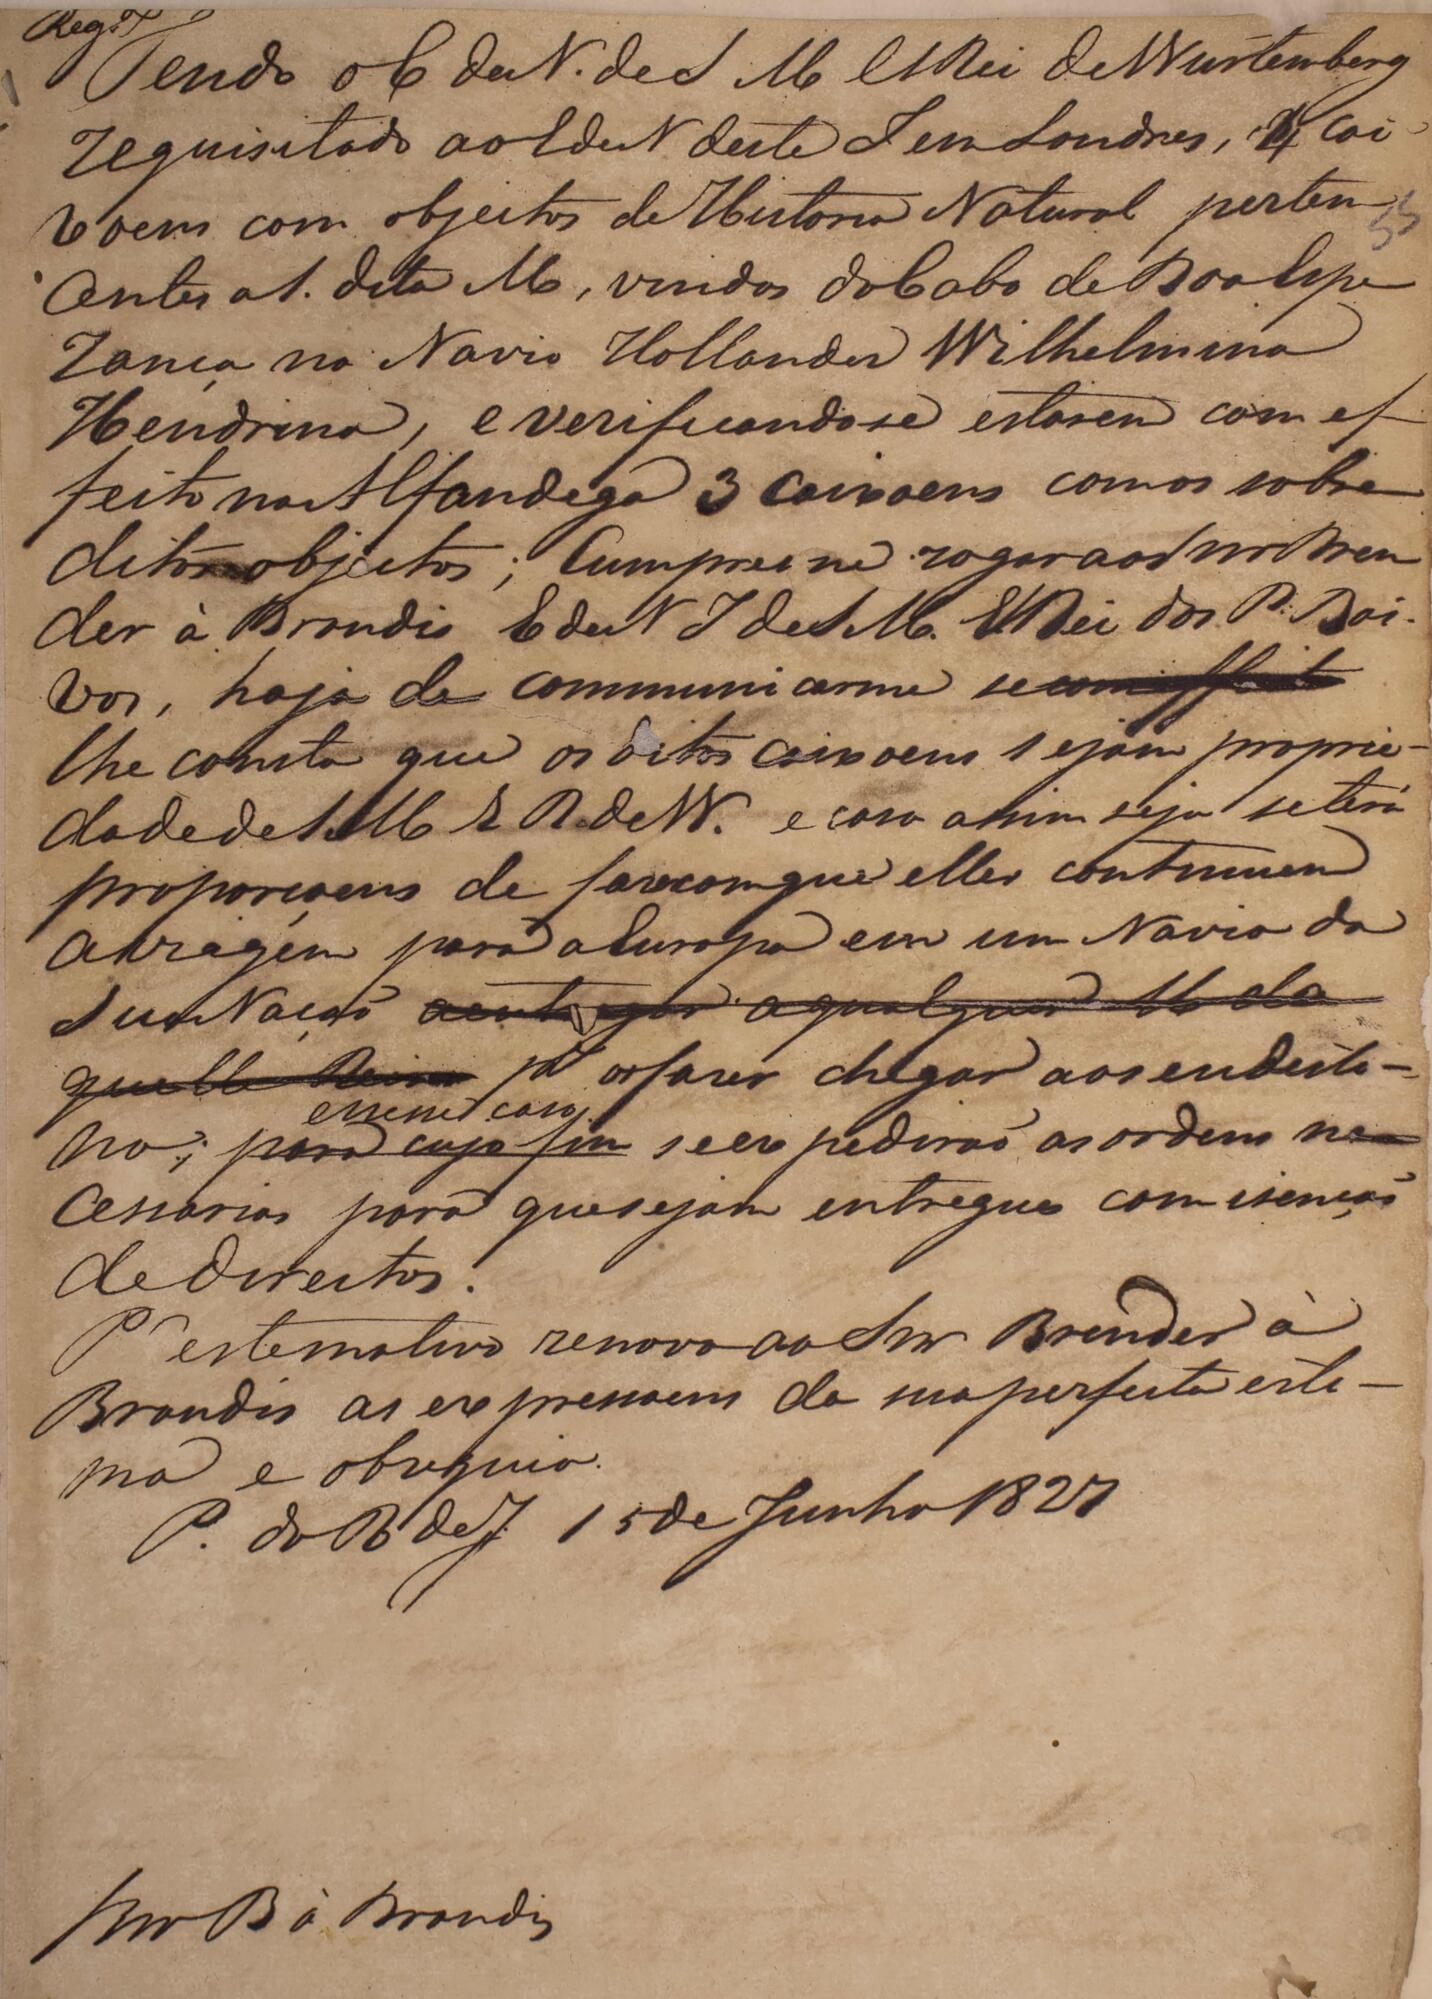 Reg.
Tendo o E de N. de S M ElRei de Wurtemberg
requisitado ao E de N deste I em Londres, 4 cai
xoens com objectos de Historia Natural perten
centes a S. dita M, vindos do Cabo de Boa Espe
rança no Navio Hollandez Wilhelmina
Hendrina, e verificandose estarem com ef
feito na Alfandega 3 caixoens com os sobre
ditos objectos; Cumpreme rogar ao Snr Bren
der à Brandis E de N I de S M. ElRei dos P. Bai-
xos, haja de communicarme se com effeito
lhe consta que os ditos caixoens sejam proprie-
dade de S. M E R. de W. e caso assim seja se terá
proporçoens de fazer com que elles continuem
a viagem para a Europa em um Navio da
Sua Nação a entregar a qualquer M da
quelle Reino pa. os fazer chegar ao seu desti-
e nesse caso
no; para cujo fim se expedirão as ordens ne
cessarias para que sejam entregues com isenção
de direitos.
Pr este motivo renovo ao Snr Brender à
Brandis as expressoens da ma perfeita esti-
ma e obsequio.
P. do R de J. 15 de Junho 1827
Snr B à Brandis
55